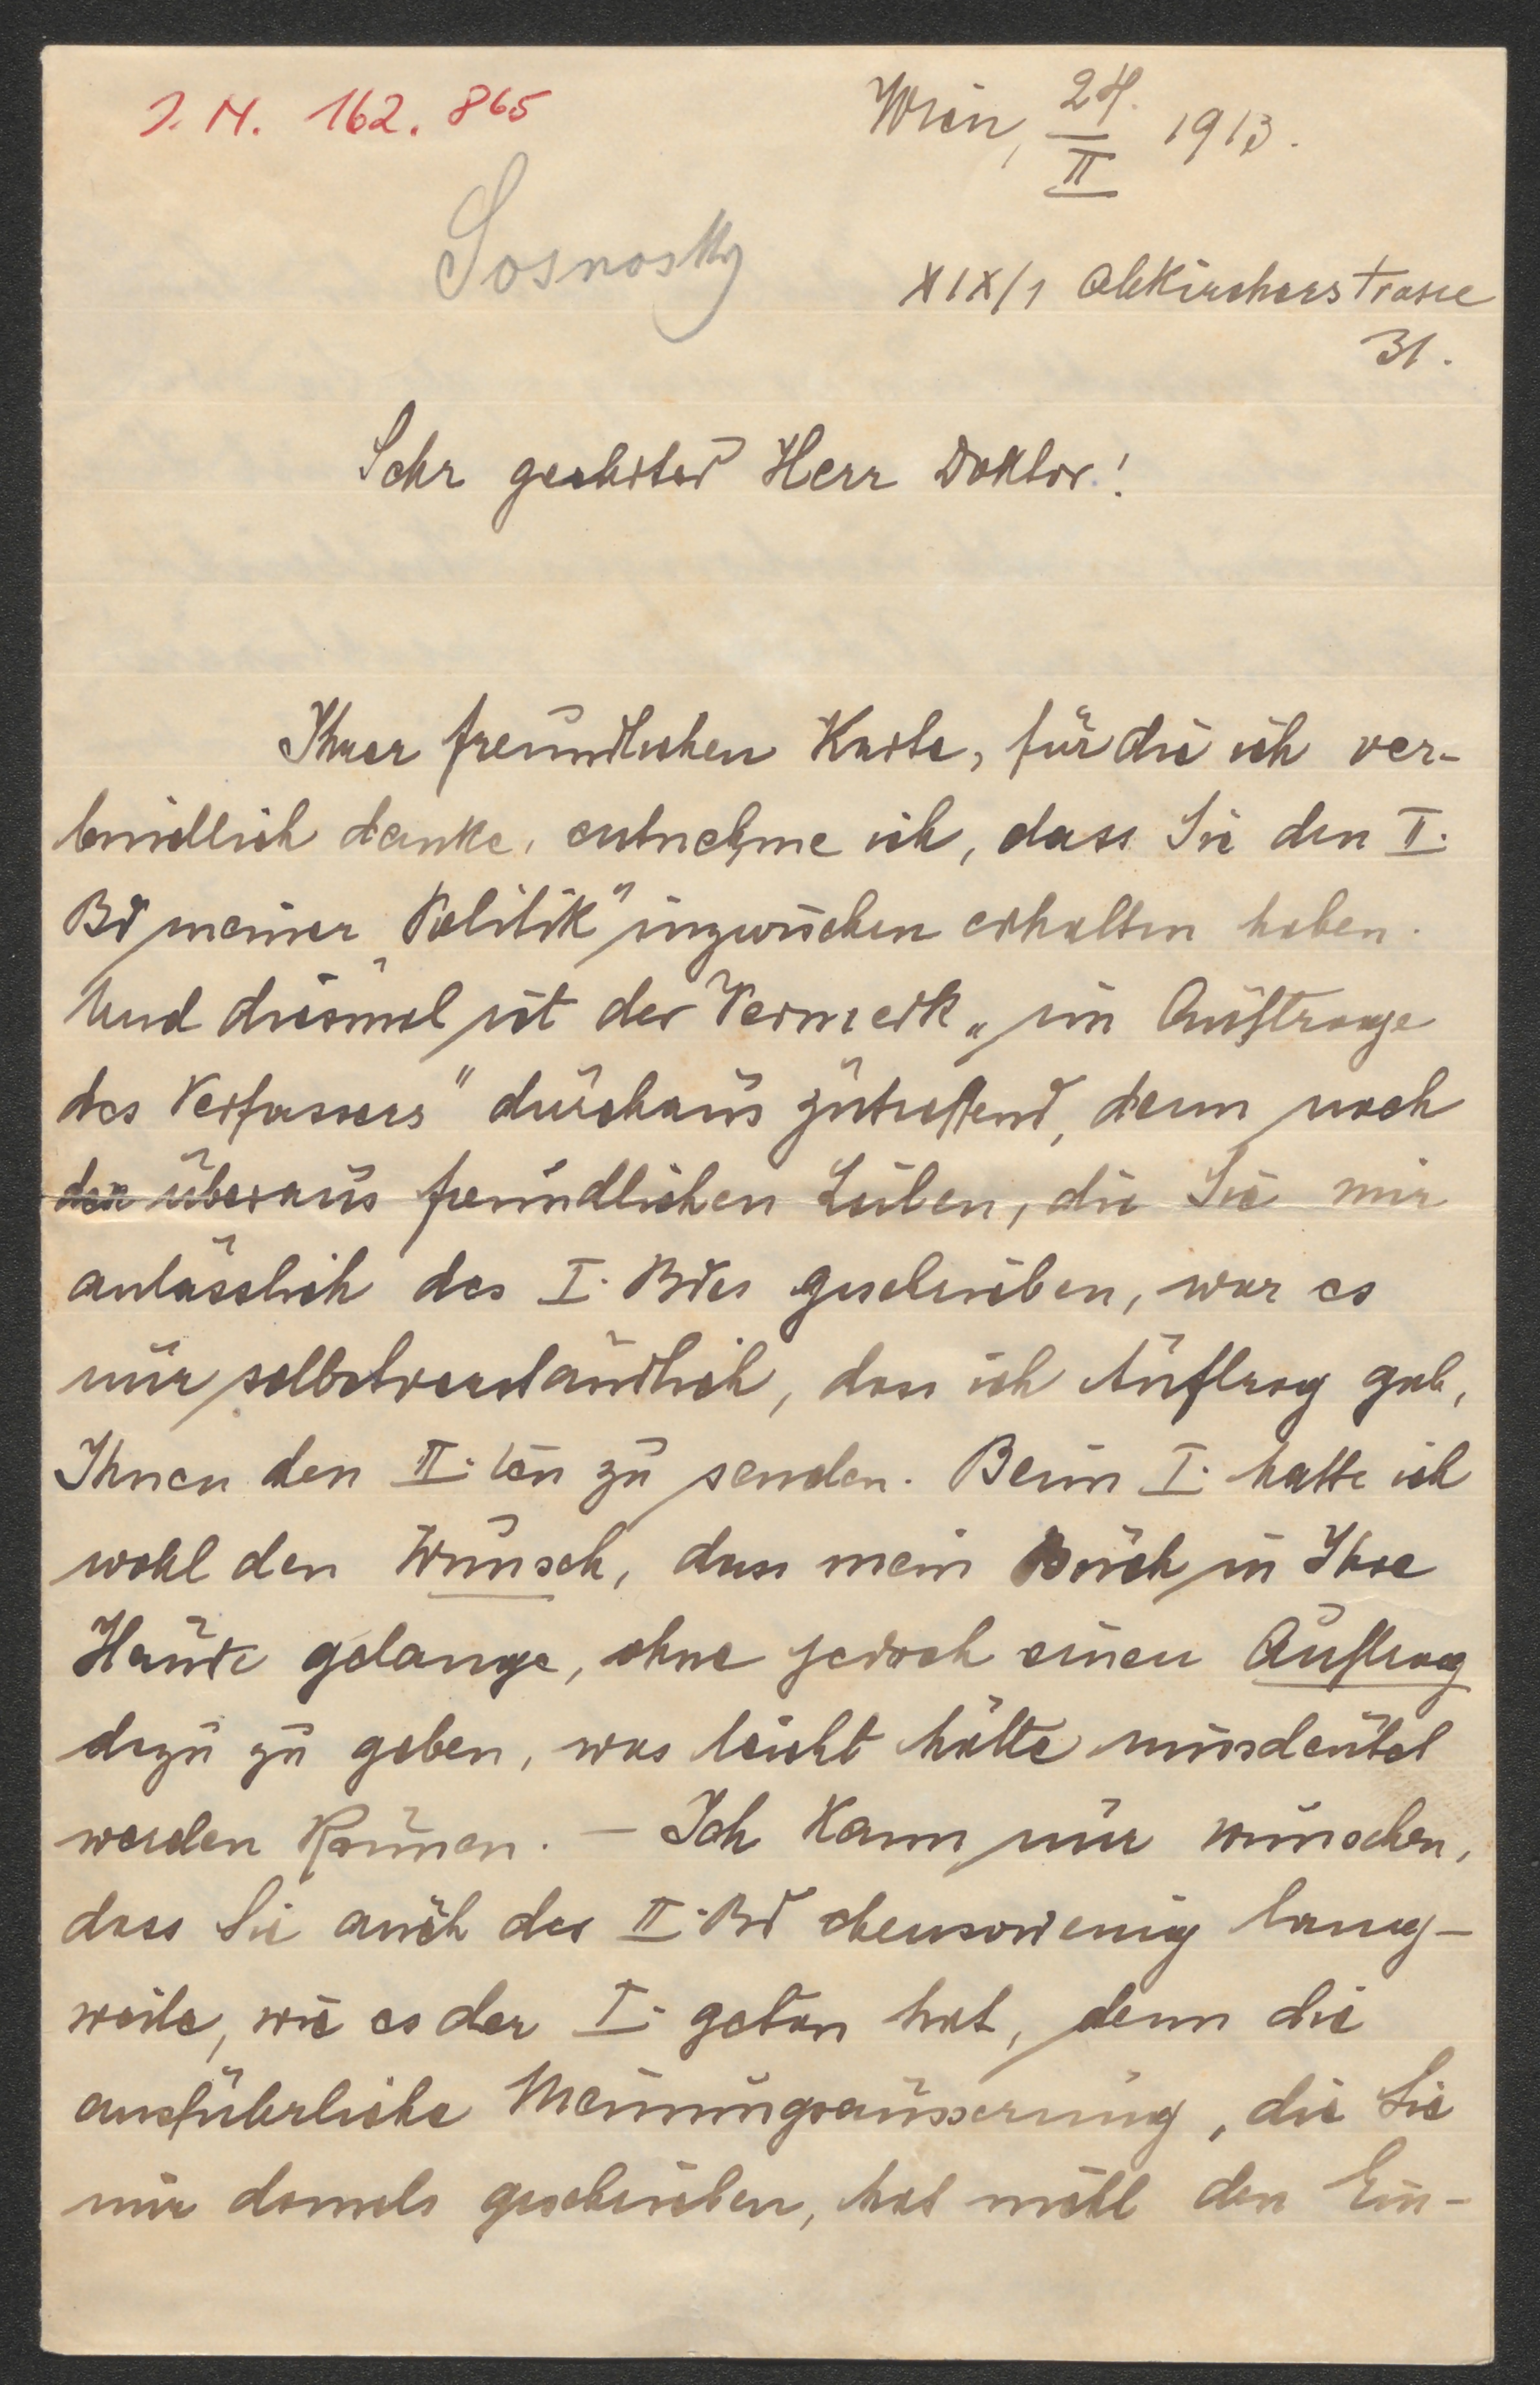 I. N. 162.865
Wien, 24. II 1913.
Sosnosky
XIX/1 Obkircherstrasse
31.
Sehr geehrter Herr Doktor!
Ihrer freundlichen Karte, für die ich ver-
bindlich danke, entnehme ich, dass Sie den II.
Bd meiner „Politik" inzwischen erhalten haben.
Und diesmal ist der Vermerk „im Auftrage
des Verfassers" durchaus zutreffend, denn nach
den überaus freundlichen Zeilen, die Sie mir
anlässlich des I. Bdes geschrieben, war es
nur selbstverständlich, dass ich Auftrag gab,
Ihnen den II. ten zu senden. Beim I. hatte ich
wohl den Wunsch, dass mein Buch in Ihre
Hände gelange, ohne jedoch einen Auftrag
dazu zu geben, was leicht hätte missdeutet
werden können. – Ich kann nur wünschen,
dass Sie auch der II. Bd ebensowenig lang-
weile, wie es der I. getan hat, denn die
ausführliche Meinungsäusserung, die Sie
mir damals geschrieben, hat nicht den Ein-